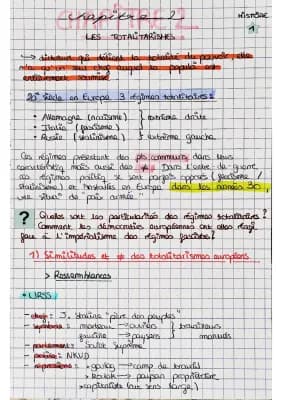 Chapitre 2
HISTOIRE
1
LES TOTALITARISMES
→ dictature qui la totalité du pouvoir elle
n'a qu'un seul auquel la population est
entièrement
20e siècle en Europe 3 régimes totalitaires :
• Allemagne (nazisme) } extrême droite
• Italie (fascisme)
• Russie (stalinisme) } extrême gauche
Ces régimes présentent des pts communs dans leurs
caractéristiques mais aussi des ≠. Dans l'entre-2-guerre
ces régimes se sont parfois opposés (fascisme /
stalinisme) et installés en Europe dans les années 30,
une situation de "paix armée"
? Quelles sont les particularités des régimes totalitaires ?
Comment les démocraties européennes ont elles réagi
face à l'impérialisme des régimes fascistes ?
1) Similitudes et ≠ des totalitarismes européens
> Ressemblances
• URSS
- chef : J. Staline "père des peuples"
- symboles : marteau → ouvriers } travailleurs
faucille → paysans manuels
- parlement : soviet suprême
- police : NKVD
- répressions : goulag → camp de travail
koulak → paysan propriétaire
capitaliste (au sens large)